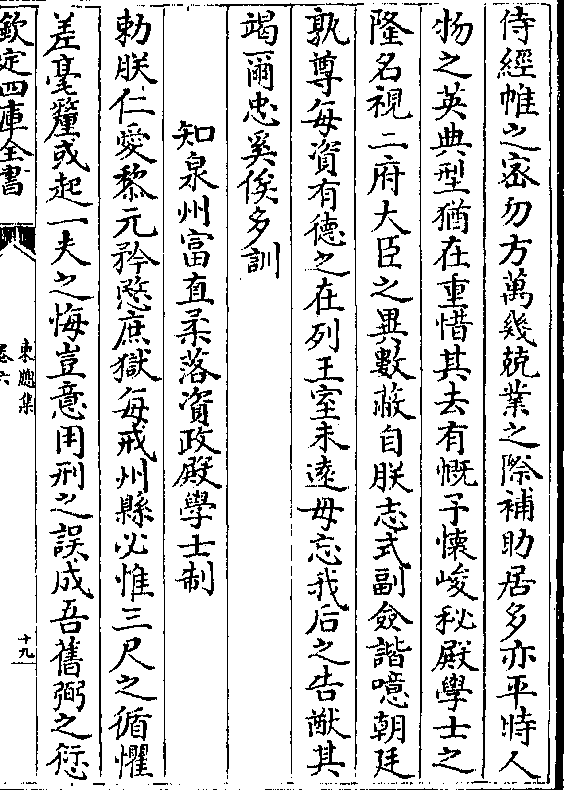 侍經帷之密勿方萬幾兢業之際補助居多亦平時人
物之英典型猶在重惜其去有慨予懷峻秘殿學士之
隆名視二府大臣之異數蔽自朕志式副僉諧噫朝廷
孰尊每資有德之在列王室未遠毋忘我后之告猷其
竭爾忠奚俟多訓
知泉州富直柔落資政殿學士制
勅朕仁愛黎元矜愍庶獄每戒州縣必惟三尺之循懼
差毫釐或起一夫之悔豈意用刑之誤成吾舊弼之愆
欽定四庫全書
東牕集
卷六
十九